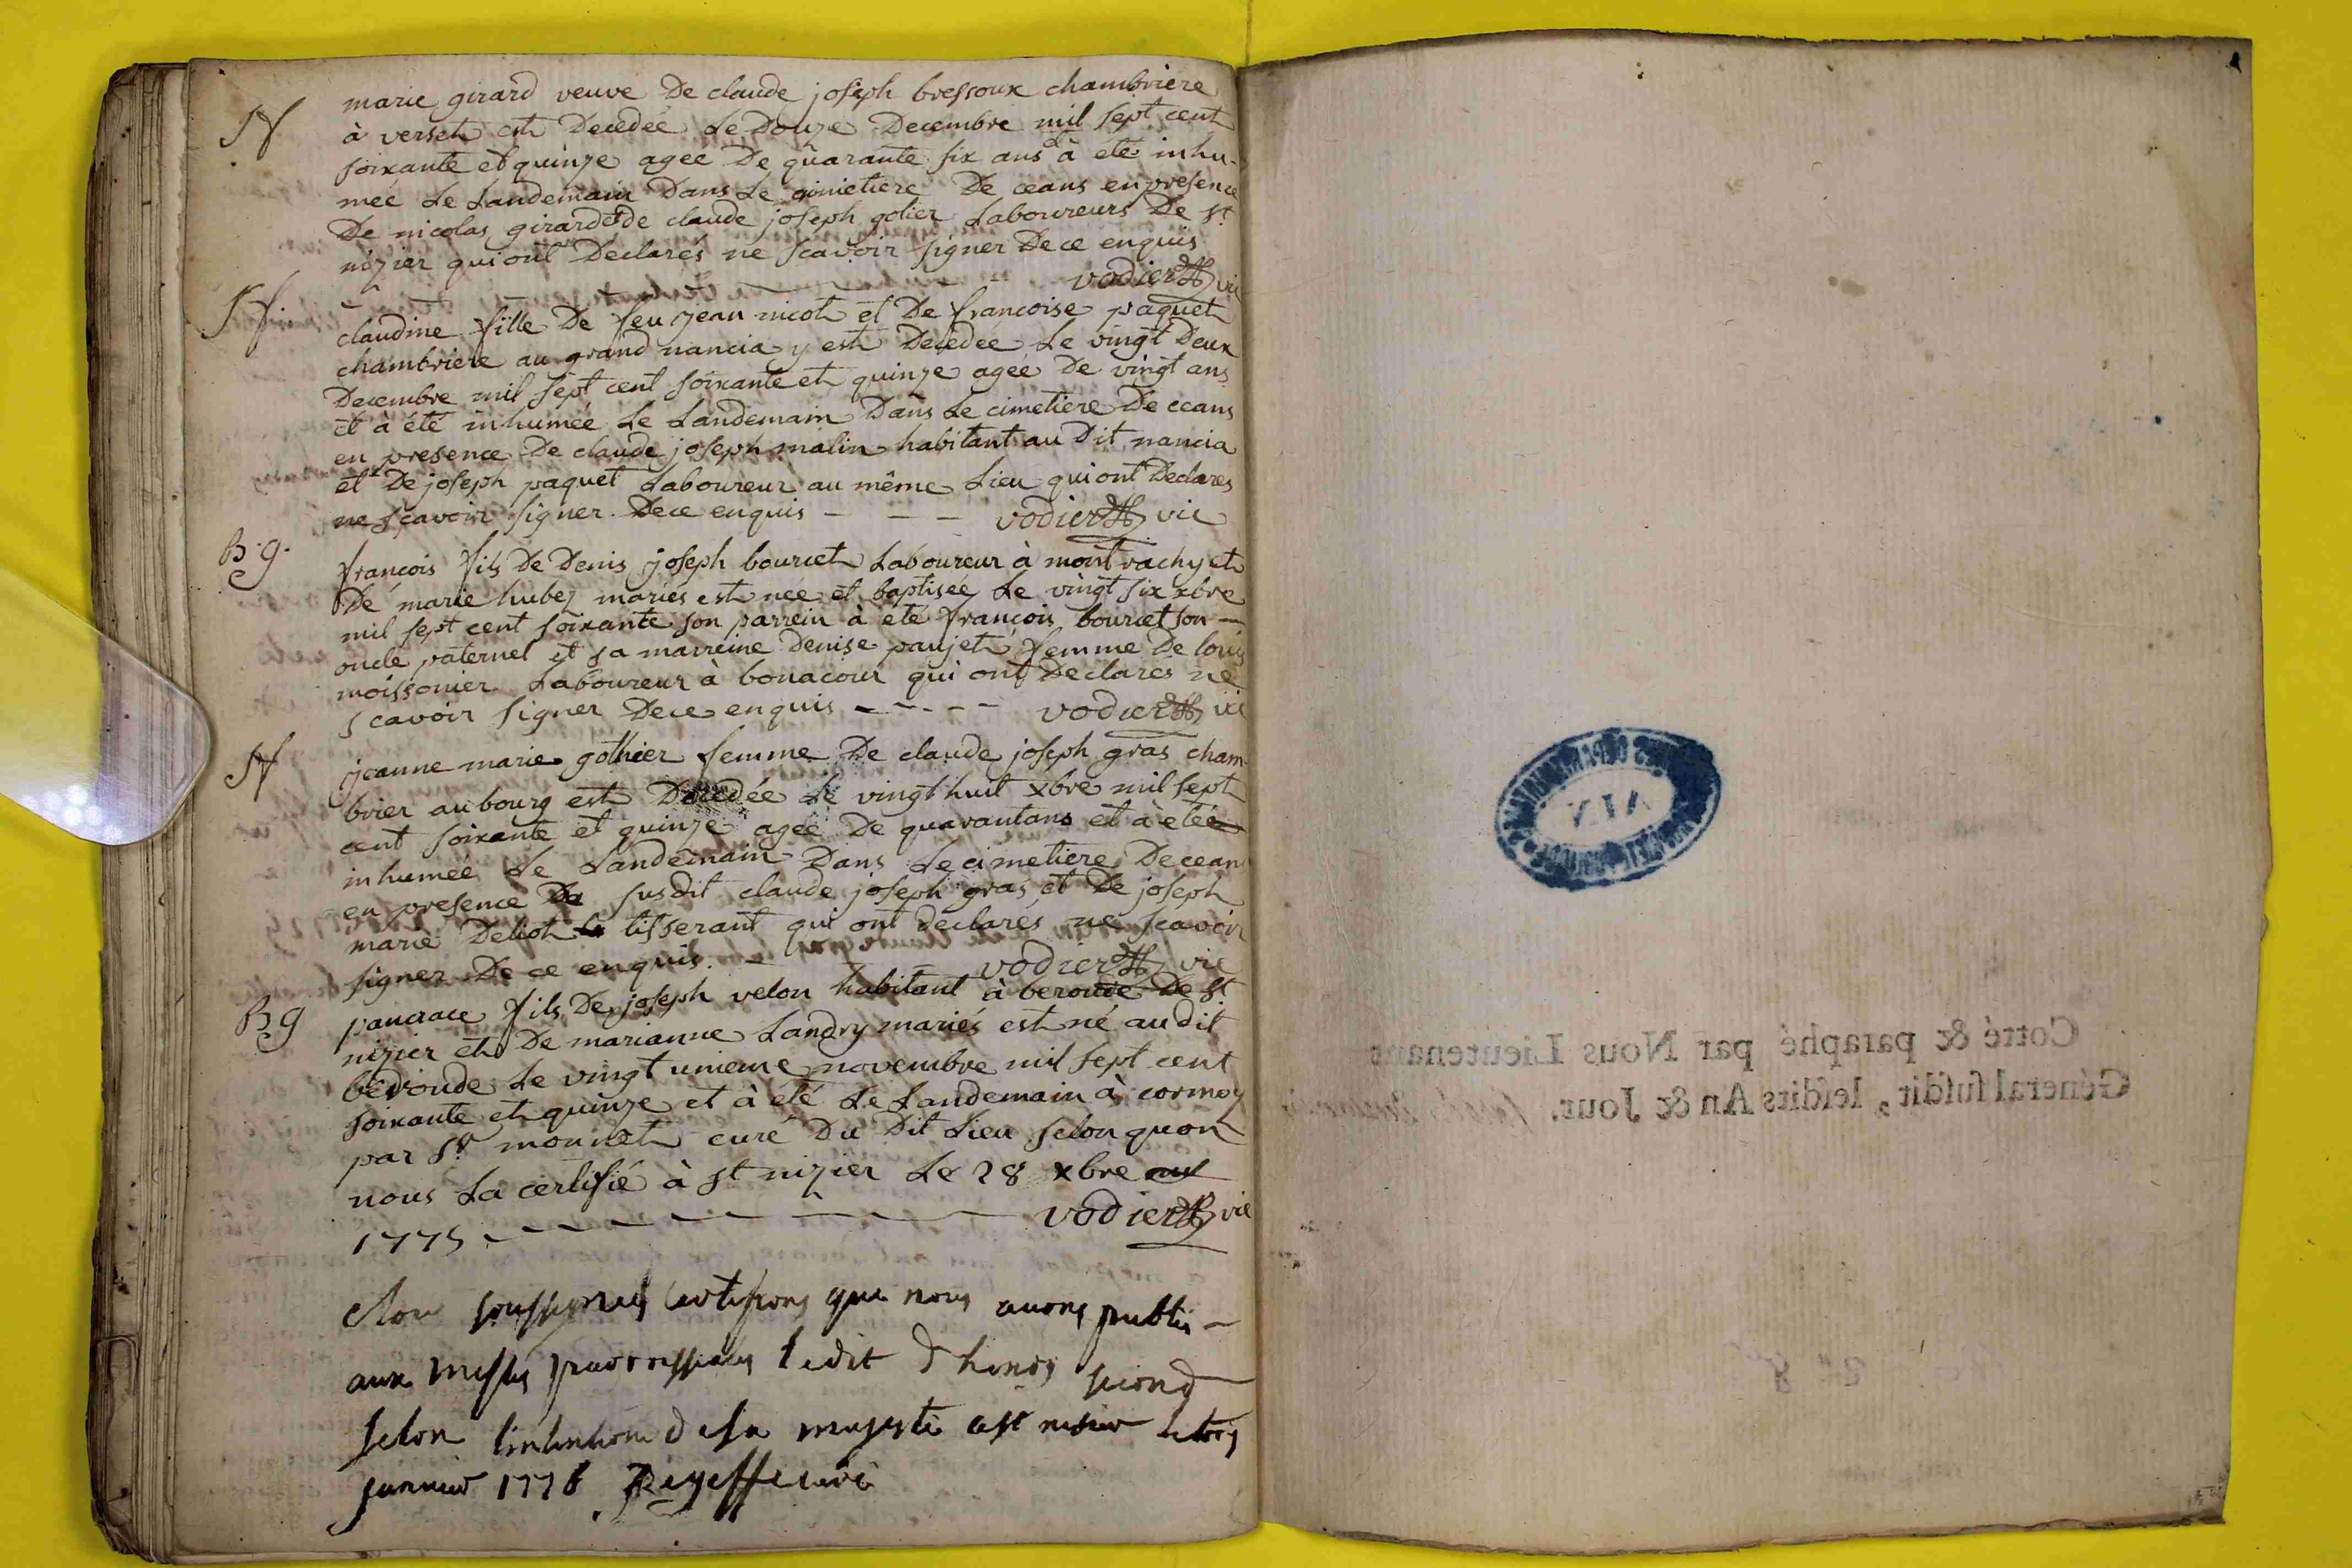 marie girard veuve De claude joseph bressoux chambriere
Sf à verset est Decedée Le Douze Decembre mil sept cent
soixante et quinze agee De quarante six ans & à eté inhu-
mée Le Landemain Dans Le cimetiere De ceans en presence
De nicolas girard et de claude joseph gotier Laboureurs De st
nizier qui ont Declarés ne scavoir signer De ce enquis
vodier vic
Sf. claudine fille De feu jean nicot et De francoise paquet
chambriere au grand nancia y est Decedée Le vingt Deux
Decembre mil sept cent soixante et quinze agée De vingt ans
et à été inhumée Le Landemain Dans Le cimetiere De ceans
en presence De claude joseph malin habitant au Dit nancia
et De joseph paquet Laboureur au même Lieu qui ont Declares
ne scavoir signer De ce enquis - - - vodier vic
B. g. francois fils De Denis joseph bourcet Laboureur à mont rachy et
De marie hubez mariés est née et baptisée Le vingt six xbre
mil sept cent soixante son parrein à eté francois bourcet son -
oncle paternel et sa marreine Denise paujet femme De louis
moissonier Laboureur à bonacour qui ont Declarés ne
scavoir signer De ce enquis - - - - vodier vic
Sf jeanne marie gothier femme De claude joseph gras cham-
brier au bourg est Decedée Le vingt huit xbre mil sept
cent soixante et quinze agée De quarantans et à etée
inhumée Le Landemain Dans Le cimetiere De cean
en presence Du susdit claude joseph gras et De joseph
marie Deliot tisserant qui ont declarés ne scavoir
signer De ce enquis. - - - vodier vic
B g pancrace fils De joseph velon habitant à beronde De st
nizier et De marianne Landry mariés est né au dit
bedronde Le vingt unieme novembre mil sept cent
soixante et quinze et à eté Le Landemain à cormoz
par Sr monnet curé Du Dit Lieu selon quon
nous La certifié à st nizier Le 28 xbre
1775 - - - - - - vodier vic
Nous soussignes certifions que nous avons publie -
aux messes parroissiales ledit d henry second
selon lintention d sa majesté a st nisier le trois
janvier 1776 curé
Cotté & paraphé par Nous Lieutenant
Géneral susdit, lesdits An & Jour.